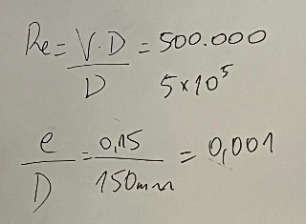 Re = V.D / D = 500.000
5x10⁵
e / D = 0,15 / 150mm = 0,001